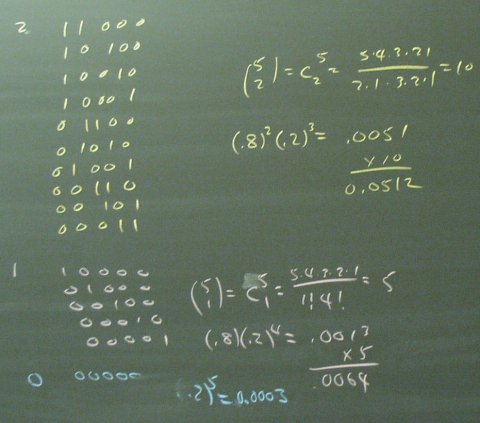 2 1 1 0 0 0
1 0 1 0 0
1 0 0 1 0
1 0 0 0 1
0 1 1 0 0
0 1 0 1 0
0 1 0 0 1
0 0 1 1 0
0 0 1 0 1
0 0 0 1 1
(5 2) = C⁵₂ = 5·4·3·2·1 / 2·1·3·2·1 = 10
(.8)²(.2)³ = .0051
x 10
0.0512
1 1 0 0 0 0
0 1 0 0 0
0 0 1 0 0
0 0 0 1 0
0 0 0 0 1
(5 1) = C⁵₁ = 5·4·3·2·1 / 1! 4! = 5
(.8)(.2)⁴ = .0013
x 5
.0064
0 0 0 0 0 0
(.2)⁵ = 0.0003